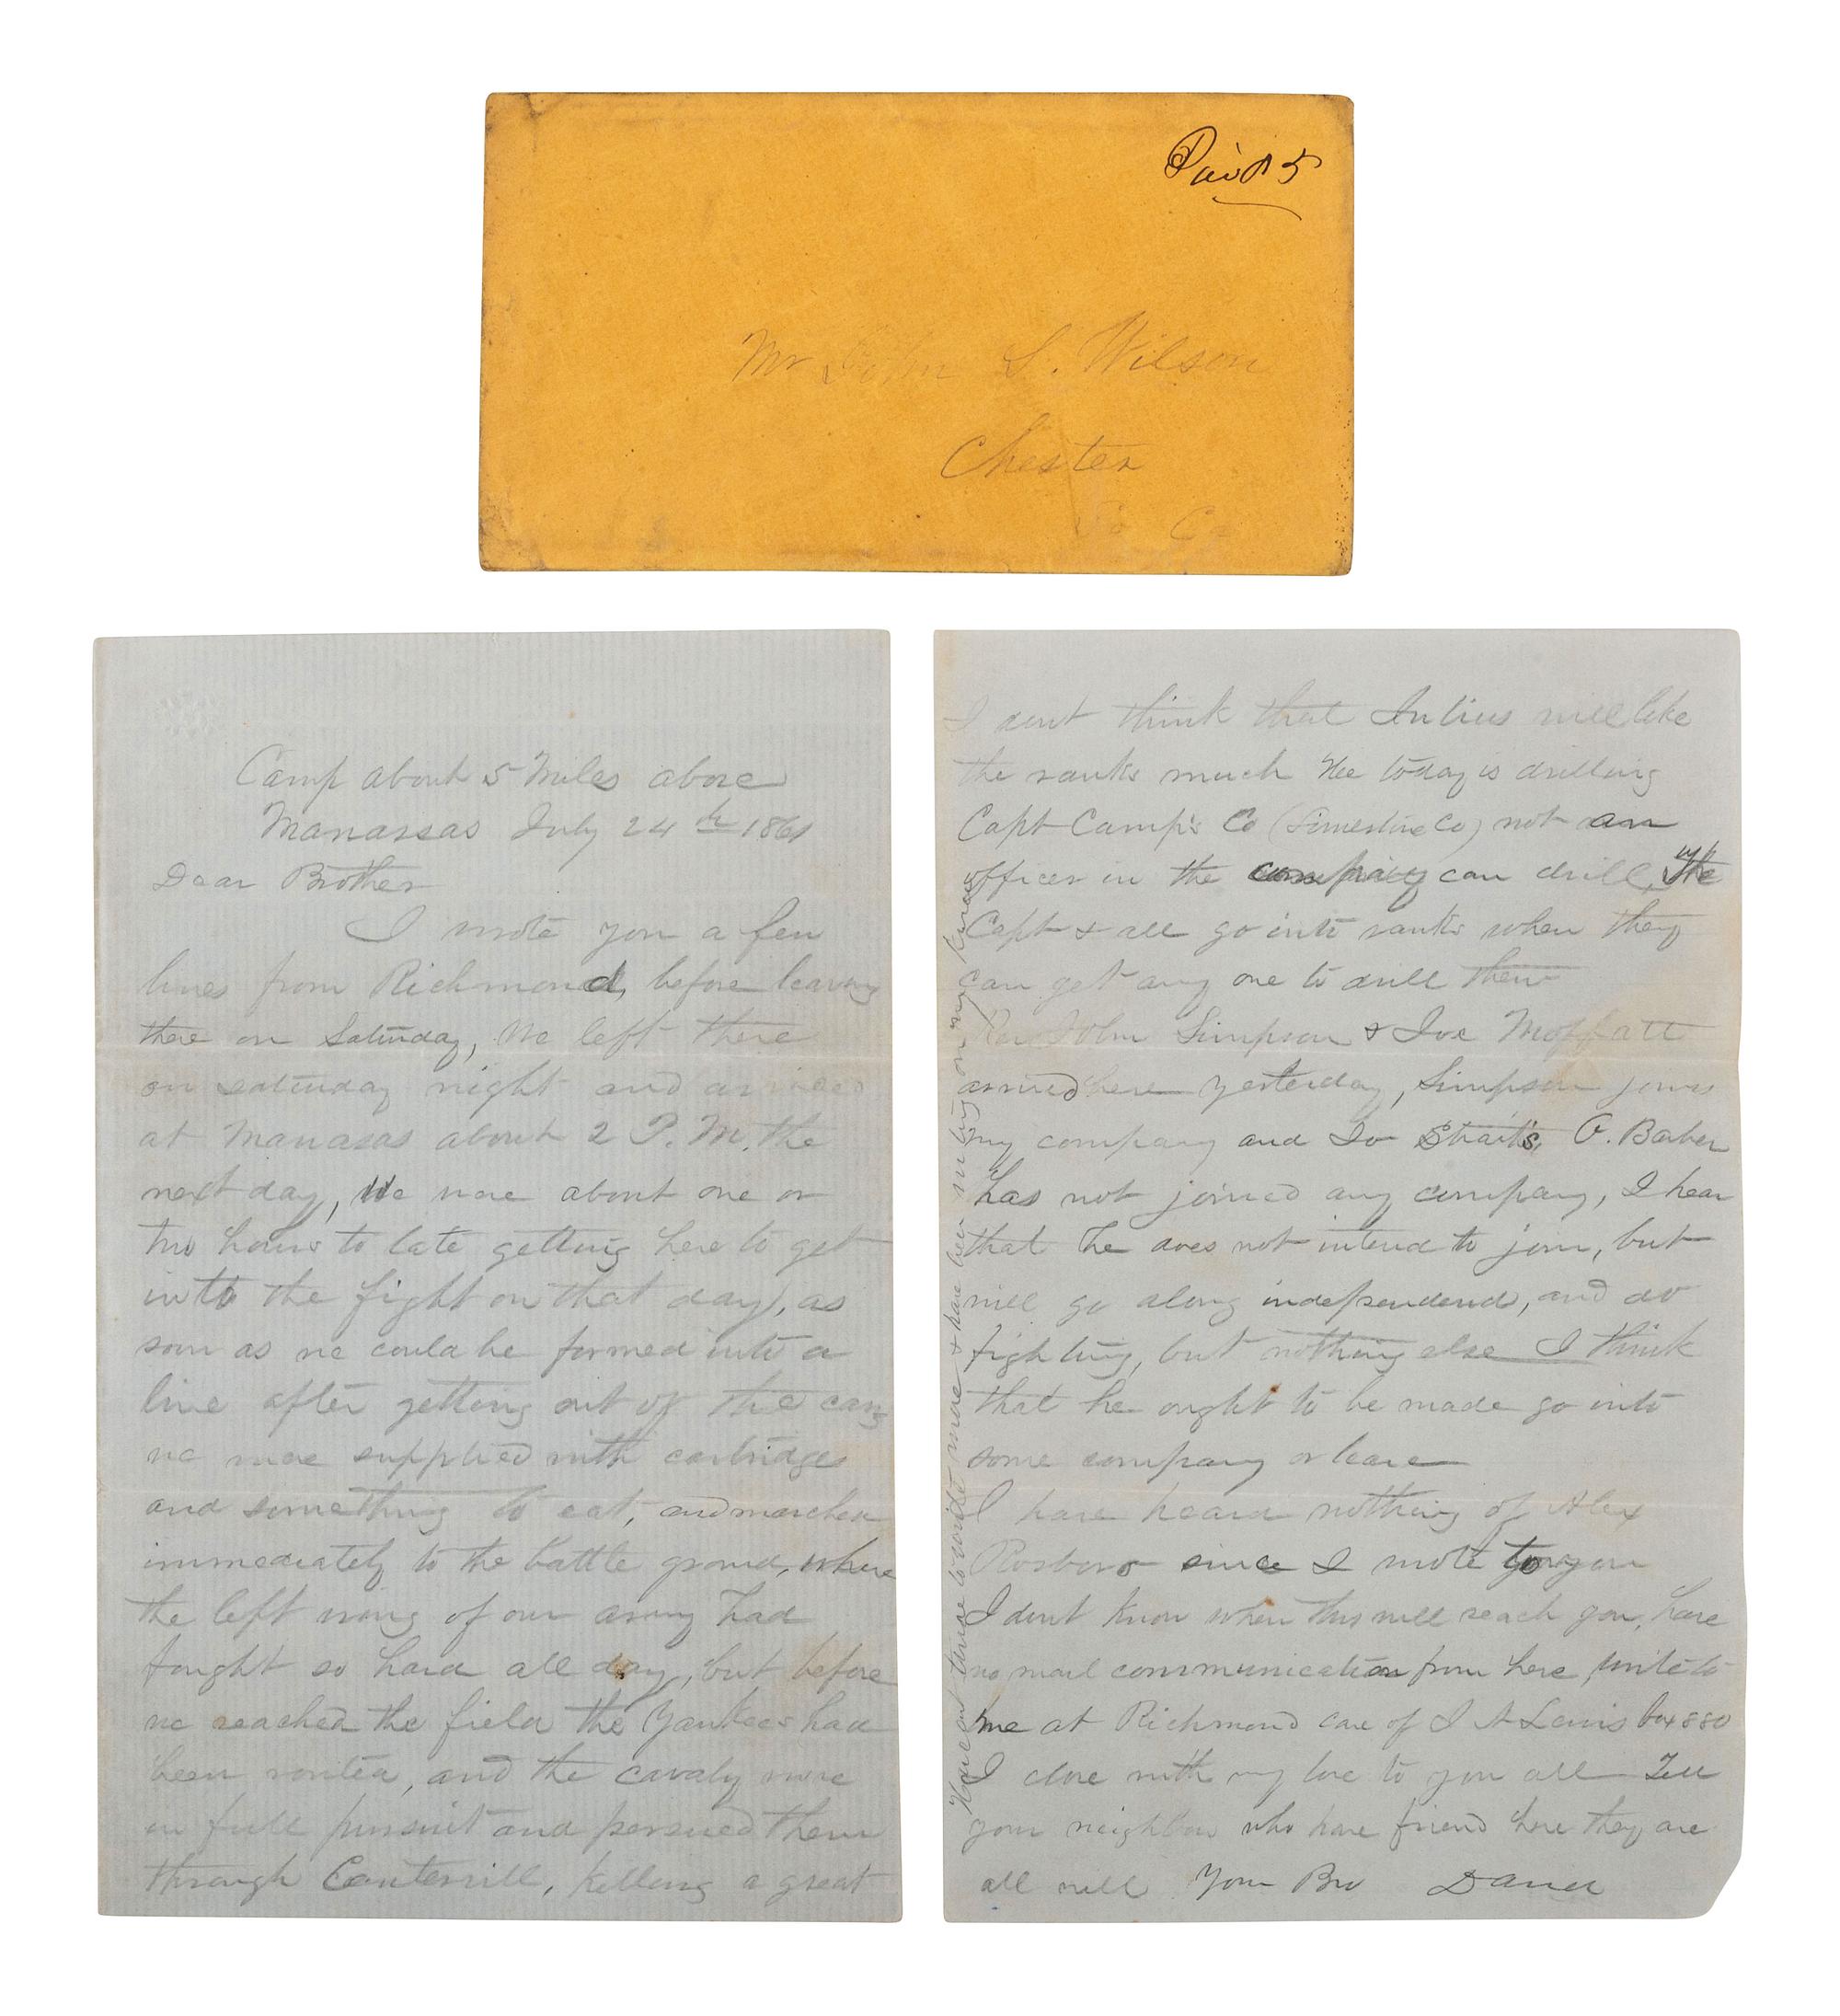 Paid 5
Mr John S. Wilson
Chester
So Ca
Camp about 5 Miles above
Manassas July 24th 1861
Dear Brother
I wrote you a few
lines from Richmond, before leaving
there on Saturday, We left there
on saturday night and arrived
at Manasas about 2 P.M. the
next day, We were about one or
two hours to late getting here to get
into the fight on that day, as
soon as we could be formed into a
line after getting out of the cars
we were supplied with cartridges
and something to eat, and marched
immediately to the battle ground, where
the left wing of our army had
fought so hard all day, but before
we reached the field the Yankees had
been routed, and the cavaly were
in full pursuit and persued them
through Centervill, killing a great
I dont think that Julius will like
the ranks much Hee today is drilling
Capt Camp's Co (Limestone Co) not an
officer in the company can drill, The
Capt & all go into ranks when they
can get any one to drill them
John Simpson & Joe Moffatt
arrived here yesterday, Simpson joins
my company and Jo Strait's, O. Barber
has not joined any company, I hear
that he does not intend to join, but
will go along independend, and do
fighting, but nothing else I think
that he ought to be made go into
some company or leave
I have heard nothing of Alex
Rosboro since I wrote to you
I dont know when this will reach you, have
no mail communication from here, write to
me at Richmond care of J A Lewis box 880
I close with my love to you all Tell
your neighbors who have friend here they are
all well Your Bro Daniel
Have not time to write more & have been writing on my knees